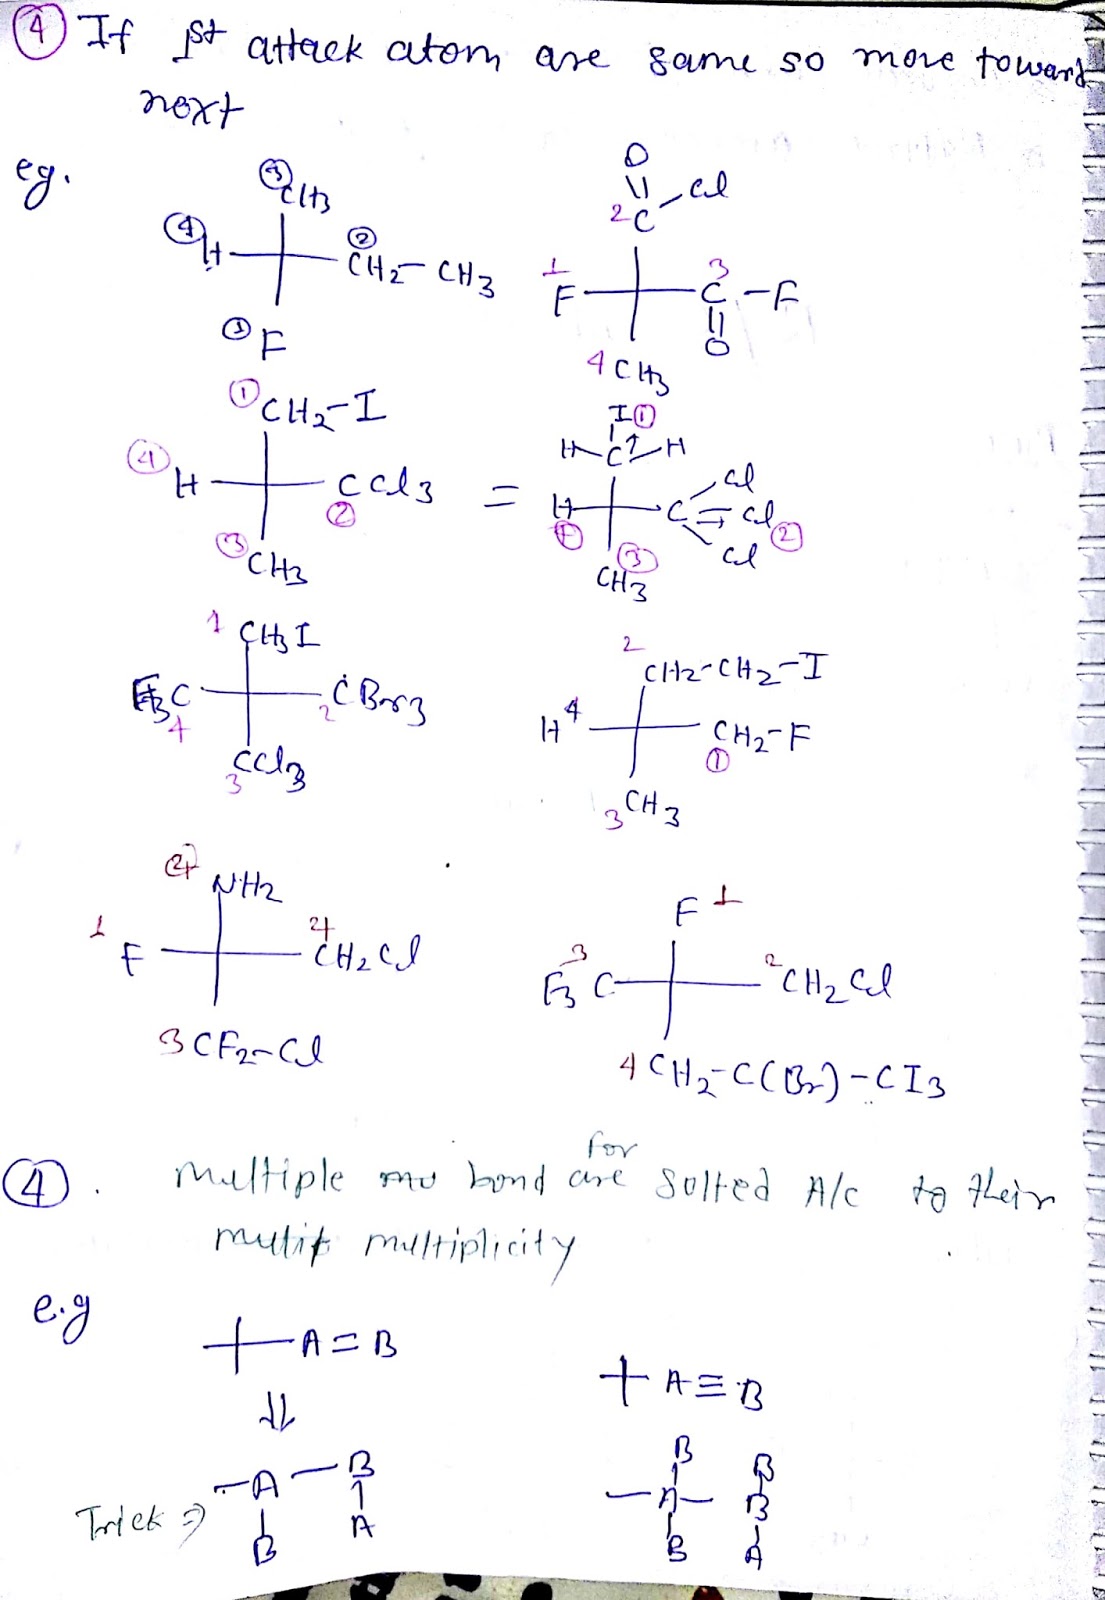 ④ If 1st attack atom are same so move toward
next
eg.
③ CH3
④ H ② CH2-CH3
① F
O
2 C Cl
1 F 3 C-F
O
4 CH3
① CH2-I
④ H CCl3 ②
③ CH3
=
I ①
H C H
H C Cl Cl Cl ②
③
CH3
1 CH3I
F3C 4 2 CBr3
3 CCl3
2 CH2-CH2-I
H 4 CH2-F ①
3 CH3
NH2
1 F CH2Cl
3 CF2-Cl
F 1
3 F3C 2 CH2Cl
4 CH2-C(Br)-CI3
④. multiple bond are for solted A/c to their
multiplicity
e.g
A=B
A≡B
⇓
Trick ⇒
A-B
B A
B B
A B
B A